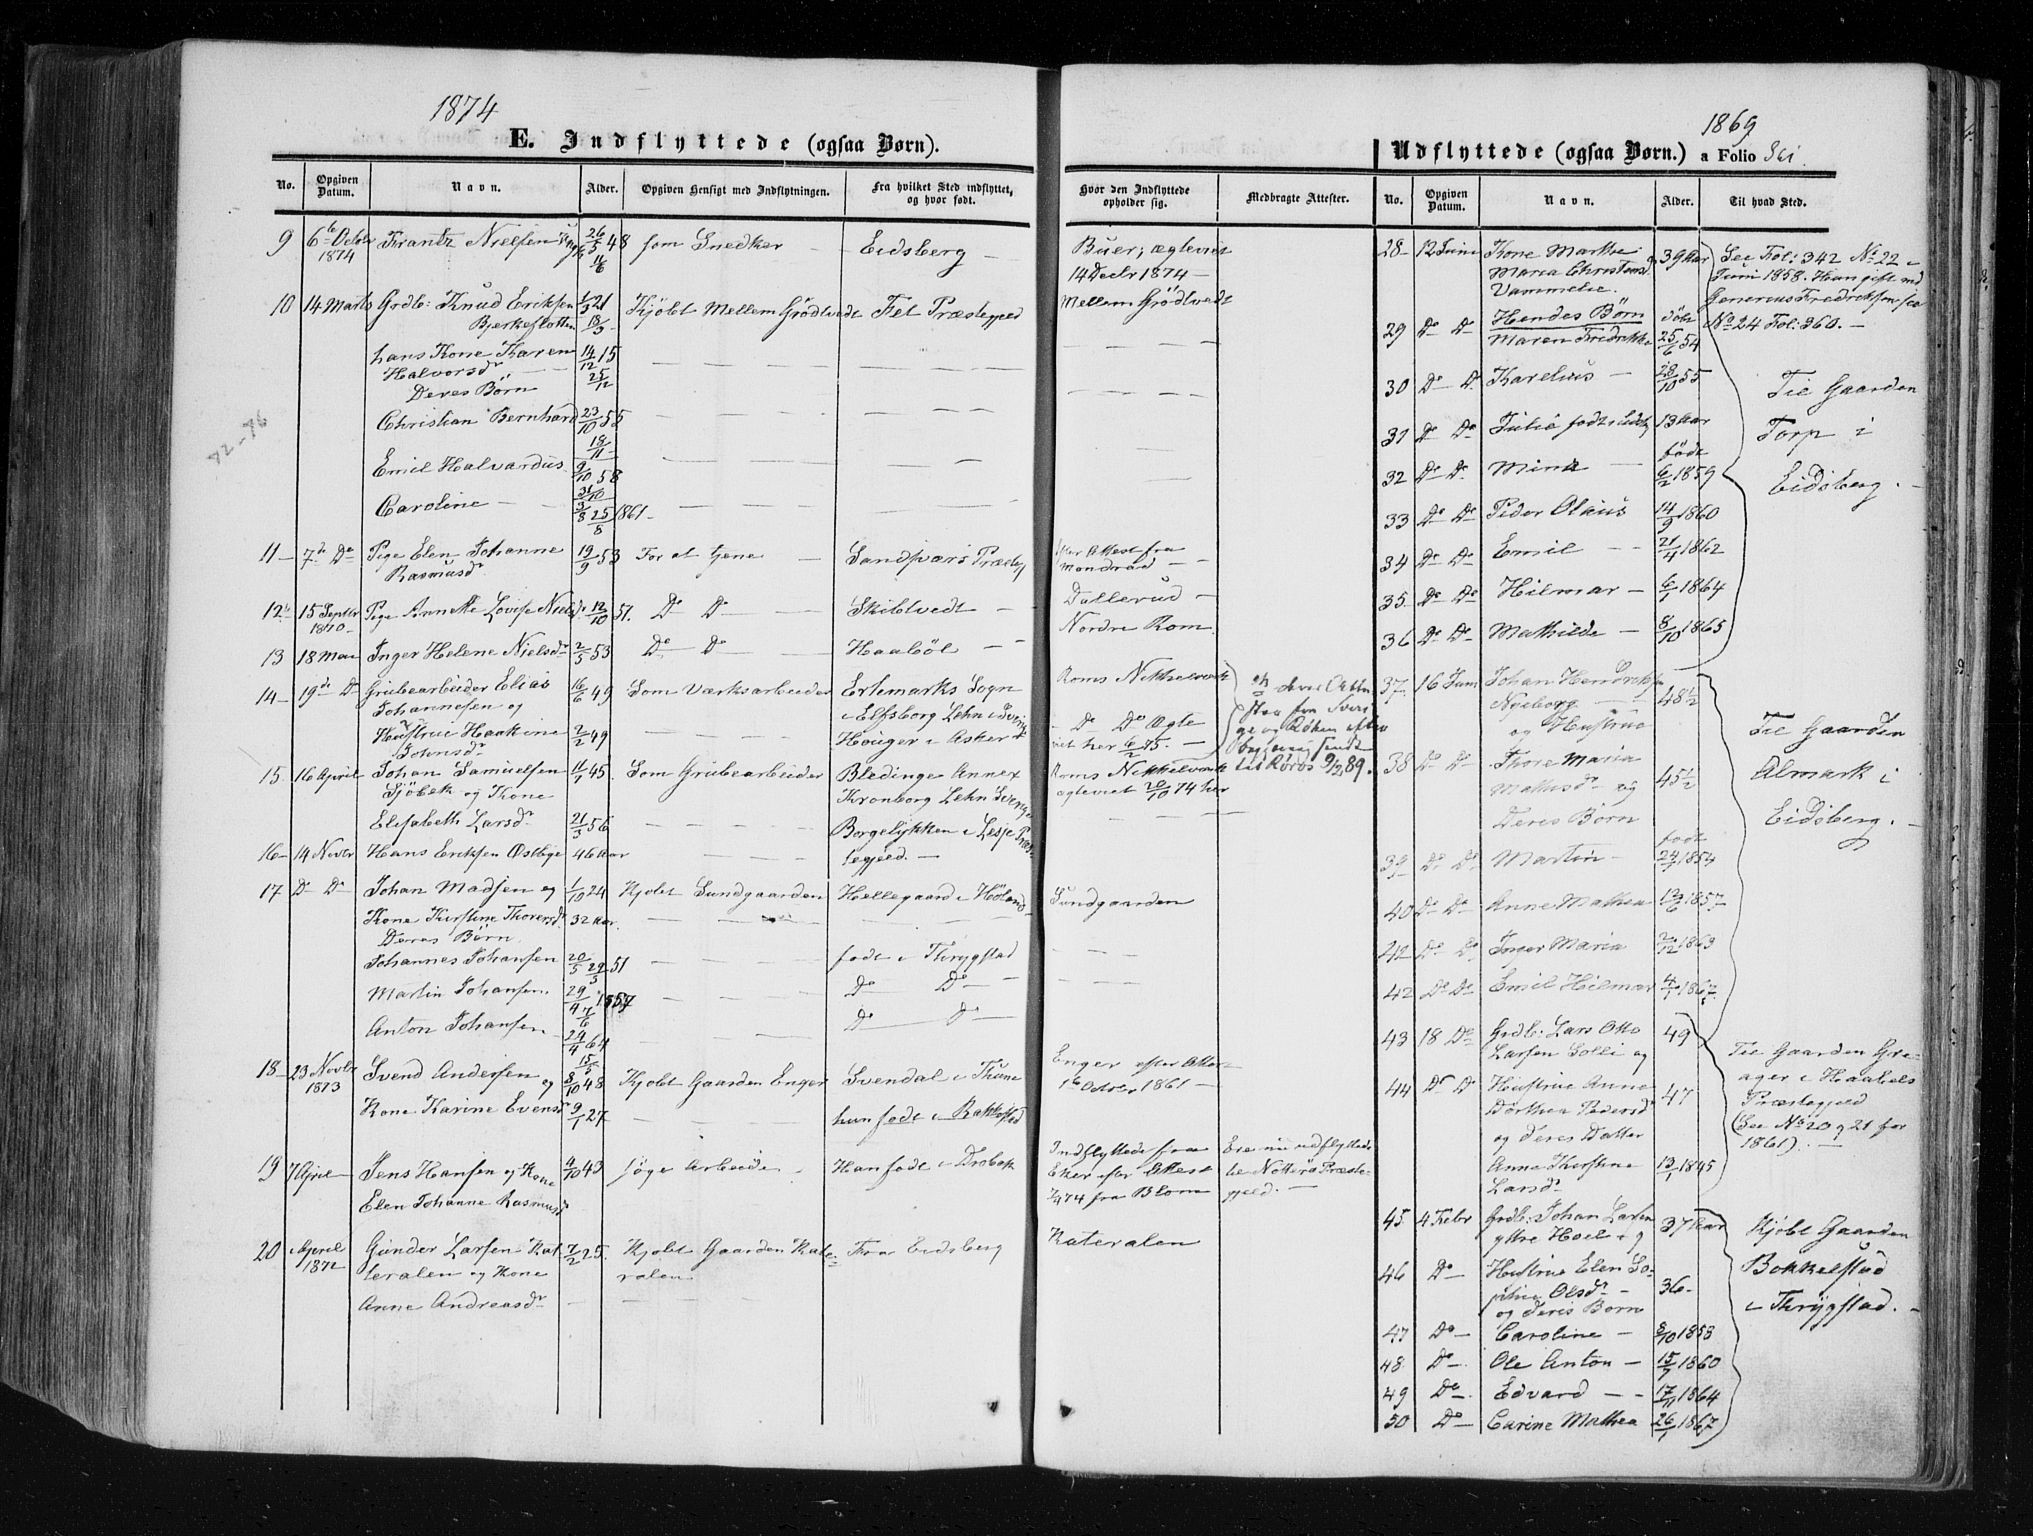 1874
E. Indflyttede (ogsaa Børn).
No. Opgiven Datum. Navn. Alder. Opgiven Hensigt med Indflytningen. Fra hvilket Sted indflyttet, og hvor født. Hvor den Indflyttede opholder sig. Medbragte Attester.
9 6te Octobr 1874 Frantz Nielsen 26/5 48 som Snedker — Eidsberg — Buer; ægteviet
11/6 14 Decbr 1874 —
10 14 Marts Grdbr: Knud Eriksen 1/3 21 Kjöbt Mellem Grödtvedt Fet Præstegjeld Mellem Grödtvedt
Bjerkeslotten 18/3
hans Kone Karen 14/12 15
Halvorsdr 25/12
Deres Börn
Christian Bernhard 23/10 55
18/11
Emil Halvardus 9/10 58
31/10
Caroline — 3/8 25/8 1861 —
82-86
11 — 7de Do Pige Elen Johanne 19/9 53 For at tjene — Præstegj Attest fra
Rasmusdr
12 15 Septbr 1870 Pige Annette Lovise Nielsdr 12/10 51. Do Do — Skibtvedt — Dallerud —
13 18 Mai Inger Helene Nielsdr 2/5 53 Do Do — Haaböl — Nordre Rom
14 — 19de Do Grubearbeider Elias 16/6 49 Som Værksarbeider Ertemarks Sogn Roms Nikkelværk
Johannesen og i Elfsborg Lehn i Sverig
Hustrue Haakine 2/2 49 Houger i Asker — Do Do Ægte
Johnsdr viet her 6/2 75. —
til Röros 9/2 89.
15 16 April Johan Samuelsen 11/1 45. Som Grubearbeider Bledinge Annex Roms Nikkelværk
Sjöbek og Kone Kronborg Lehn Sverige ægteviet 20/10 74 her
Elisabeth Larsdr 21/3 56
16 — 14 Novbr Hans Eriksen Ostbye 46 Aar Borgelykken i Lesje Præs-
tegjeld. —
17 Do Do Johan Madsen og 1/10 24 Kjöbt Sundgaarden Hellegaard i Höland Sundgaarden
Kone Kirstine Thoresdr 32 Aar.
Deres Börn
Johannes Johansen 20/5 29/5 51 født i Thrygstad
Martin Johansen 29/4 7/6 1857 Do Do —
Anton Johansen 24/4 64 Do Do —
15/5
18 — 23 Novbr 1873 Svend Andersen og 8/10 48 Kjöbt Gaarden Enger Svendal i Thune Enger efter Attest
1ste Octbr 1861 —
Kone Karine Evensdr 9/1 27 hun født i Rakkestad
19 7 April Jens Hansen og Kone 4/10 43 söge Arbeide — Han født i Dröbak Indflyttede fra Ere nu udflyttede
Elen Johanne Rasmusdr Eker efter Attest til Nötterö Præste-
74 fra Blom gjeld. —
20 April 1872 Gunder Larsen Kat- 7/2 25. Kjöbt Gaarden Kate- Fra Eidsberg Kateralen
teralen og Kone ralen
Anne Andreasdr —
1869
Udflyttede (ogsaa Børn.) a Folio 361.
No. Opgiven Datum. Navn. Alder. Til hvad Sted.
28 — 12 Juni Kone Marthe 39 Aar See Fol: 342 No 22 i
Maria Christensdr Juni 1858. Hun gift med
Vammelse. Generius Fredriksen see
29 Do Do Hendes Börn født No 24 Fol: 360. —
Maren Fredrikke 25/6 54
30 Do Do Karelius — 28/10 55 Til Gaarden
31 Do Do Julie født i Eidsbg 13 Aar Torp i
født
32 Do Do Mina — 6/2 1859 Eidsberg. —
33 Do Do Peder Olaus 14/9 1860
34 Do Do Emil — 21/4 1862
35. Do Do Hilmar — 6/1 1864
36 Do Do Mathilde — 8/10 1865
37. 16 Juni Johan Hendriksen 48½
Nyeborg —
og Hustrue Til Gaarden
38 Do Do Thore Maria 45½ Almark i
Mathisdr og
Deres Börn Eidsberg. —
født
39 Do Do Martin — 24/7 1854
40 Do Do Anne Mathea 13/6 1857
42 Do Do Inger Maria 20/12 1863
42 Do Do Emil Hilmar 4/1 1867.
43 18 Do Grdbr: Lars Otto 49 Til Gaarden Gre-
Larsen Solli og ager i Haaböls
44 Do Do Hustrue Anne 47 Præstegjeld
Dorthea Pedersdr (See No 20 og 21 for
og deres Datter 1861). —
Anne Kirstine 13/1 1845
Larsdr
45. 4 Febr Grdbr: Johan Larsen 37 Aar Kjöbt Gaarden
ytre Hoel og
46 Do — Hustrue Elen So- 36 — Bokkelstad
phie Olsdr — i Thrygstad. —
og deres Börn
47 Do — Caroline — 8/10 1853
48 Do — Ole Anton — 15/7 1860
49 Do — Edvard — 17/11 1864
50 Do — Carine Mathea 26/1 1867